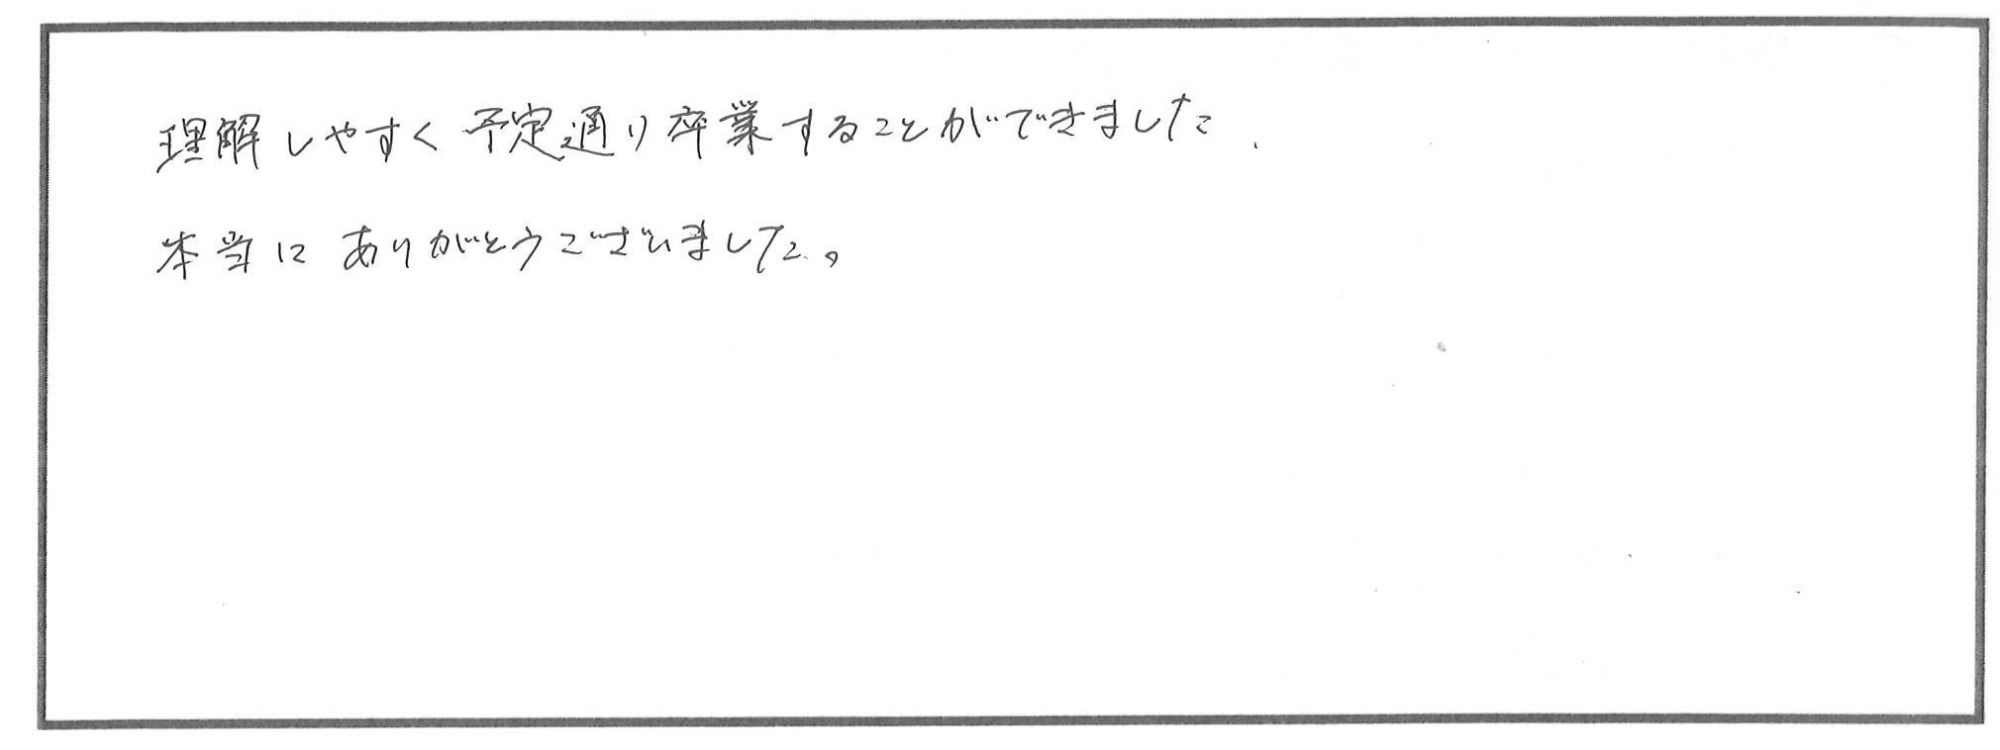 理解しやすく予定通り卒業することができました.
本当にありがとうございました。